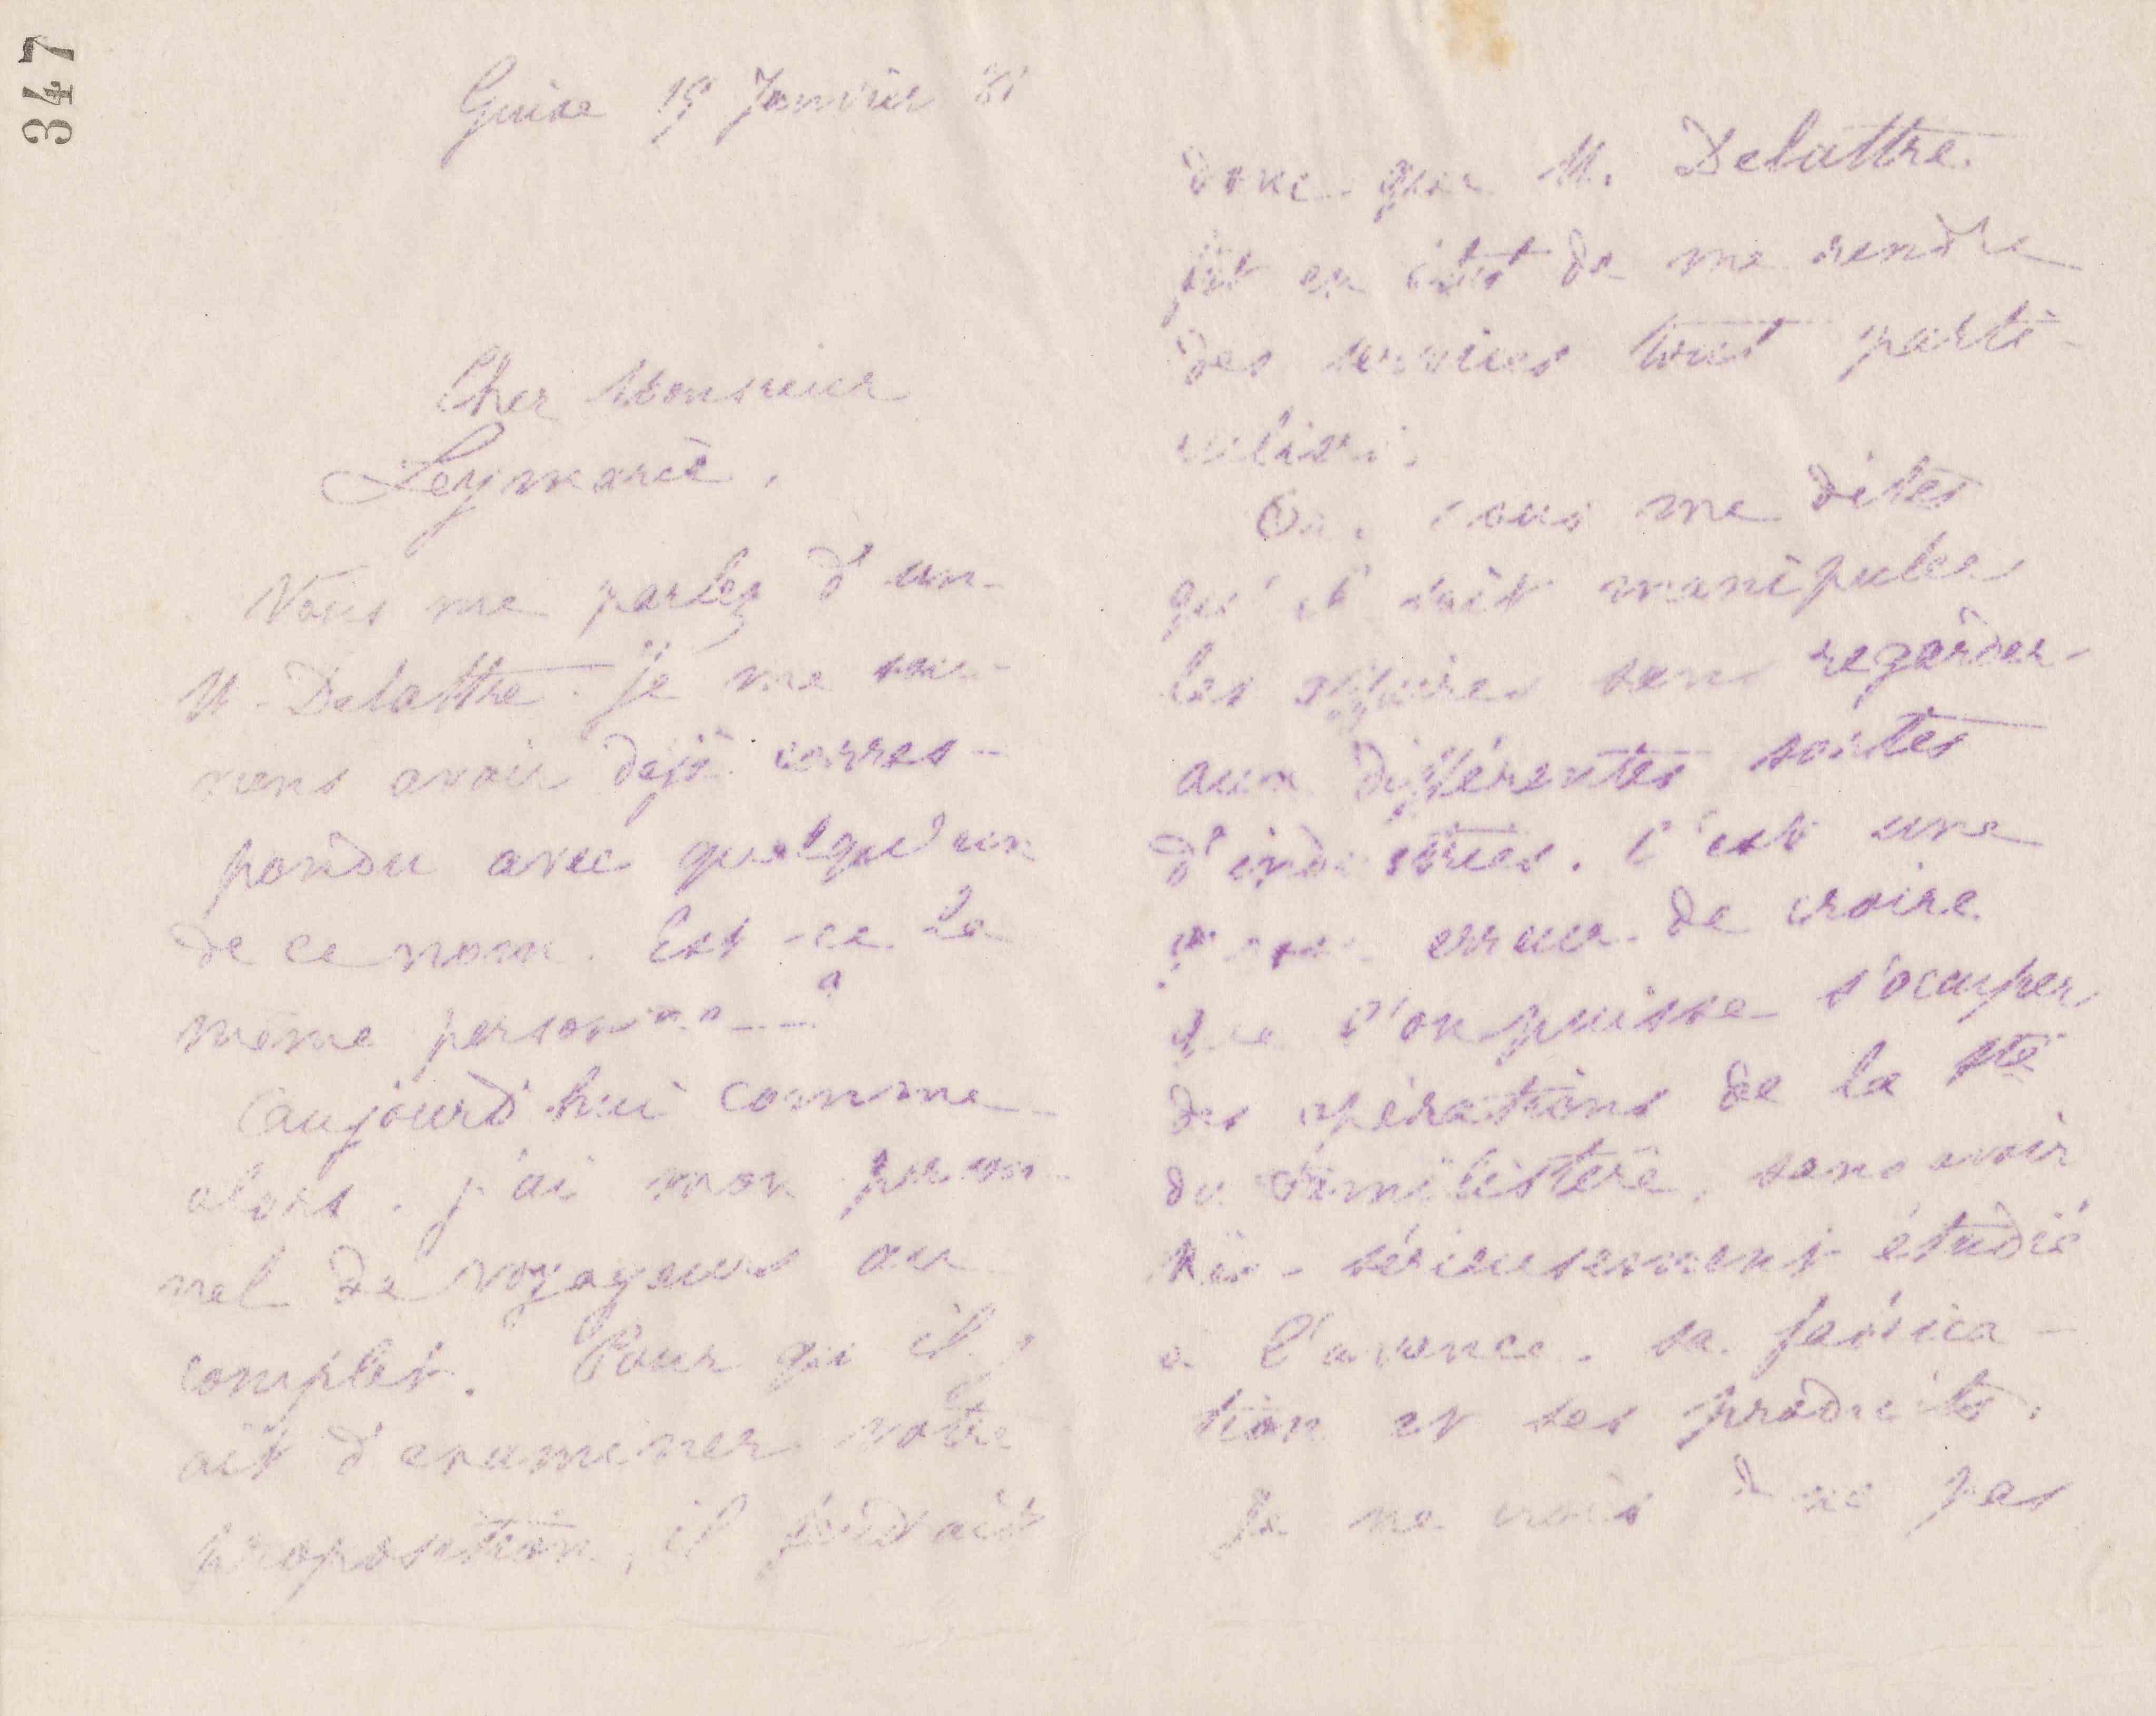 347
Guise 19 Janvier 81
Cher Monsieur
Leymarie,
Vous me parlez d'un
M. Delattre. Je me sou-
viens avoir déjà corres-
pondu avec quelqu'un
de ce nom. Est-ce la
même personne ?
Aujourd'hui comme
alors, j'ai mon person-
nel de voyageurs au
complet. Pour qu'il y
ait d'examiner votre
proposition, il faudrait
donc que M. Delattre
fût en état de me rendre
des services tout parti-
culiers.
Or, vous me dites
qu'il sait manipuler
les affaires sans regarder
aux différentes sortes
d'industries. C'est une
erreur de croire
que l'on puisse s'occuper
des opérations de la Sté
du Familistère, sans avoir
très sérieusement étudié
à l'avance sa fabrica-
tion et ses produits.
Je ne crois donc pas